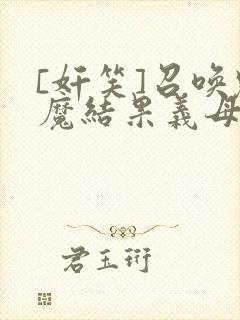 [奸笑]召唤
魔结果义母
君玉珩